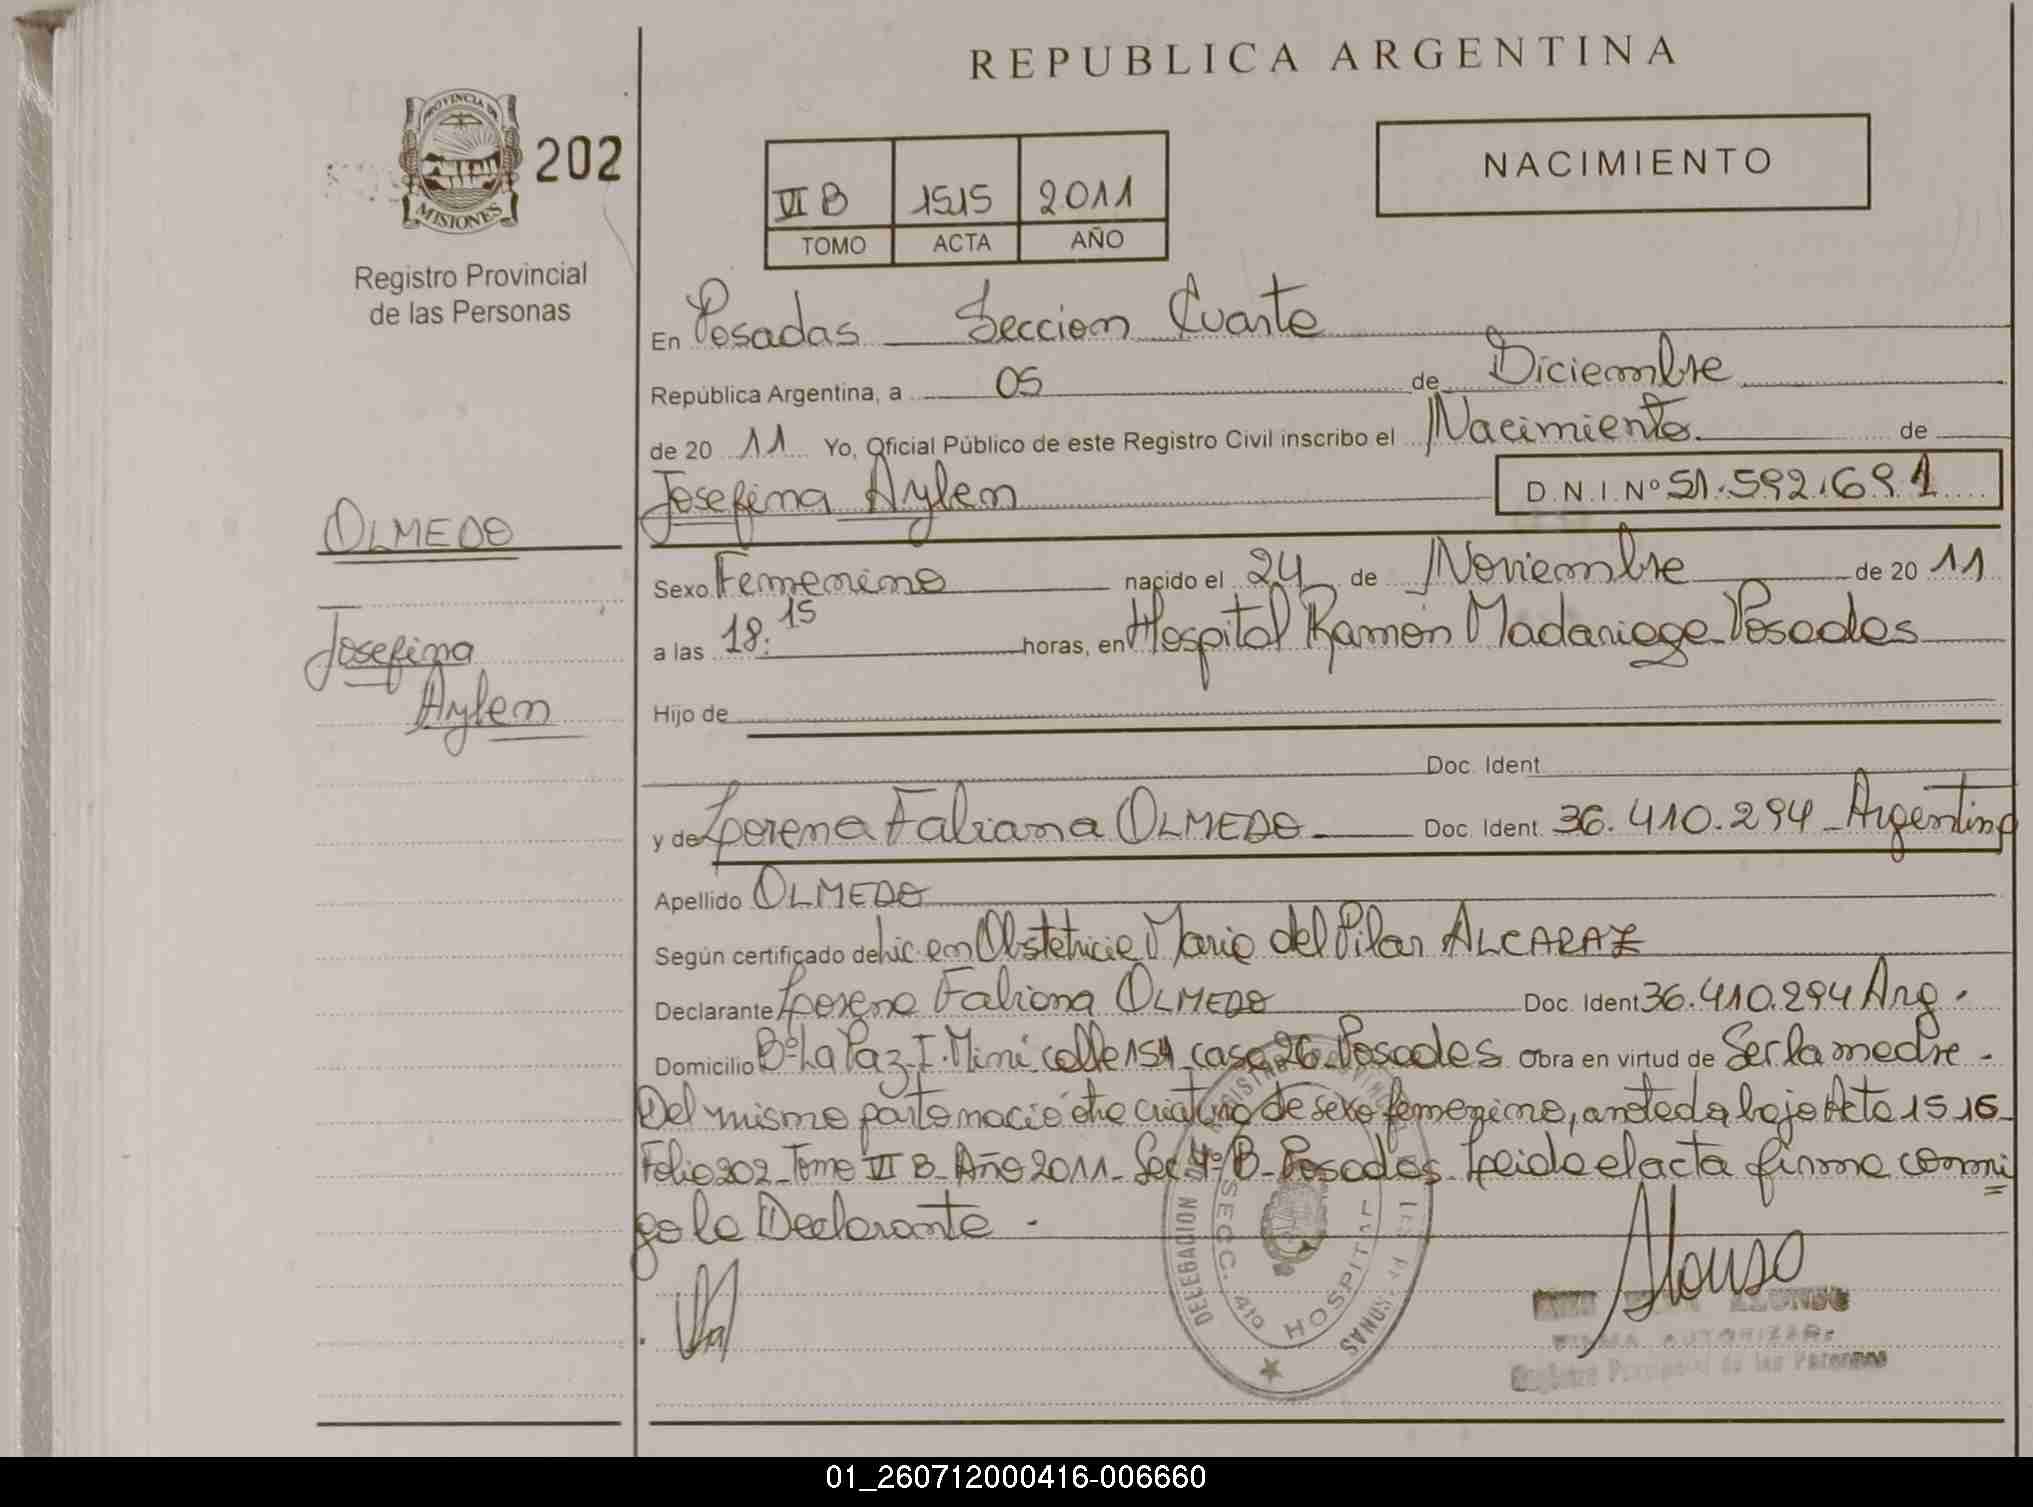 REPUBLICA ARGENTINA
202
PROVINCIA DE
MISIONES
Registro Provincial
de las Personas
VI B 1515 2011
TOMO ACTA AÑO
NACIMIENTO
En Posadas Seccion Cuarta
República Argentina, a 05 de Diciembre
de 20 11 Yo, Oficial Público de este Registro Civil inscribo el Nacimiento de
Josefina Aylen D.N.I. Nº 51.592.691
OLMEDO
Josefina
Aylen
Sexo Femenino nacido el 24 de Noviembre de 20 11
a las 18:15 horas, en Hospital Ramón Madariaga Posadas
Hijo de
Doc. Ident.
y de Lorena Fabiana OLMEDO Doc. Ident. 36.410.294 - Argentina
Apellido OLMEDO
Según certificado de Lic. en Obstetricia Maria del Pilar ALCARAZ
Declarante Lorena Fabiana OLMEDO Doc. Ident 36.410.294 Arg.
Domicilio Bº La Paz I. Miní calle 154 casa 26 Posadas Obra en virtud de Ser la madre -
Del mismo parto nació otra criatura de sexo femenino, anotada bajo Acta 1516
Folio 202 - Tomo VI B - Año 2011 - Sec. 4º B - Posadas. Leida el acta firma conmi
go la Declarante -
DELEGACION SECC. 4ta HOSPITAL
Alonso
ALONSO
FIRMA AUTORIZADA
Registro Provincial de las Personas
01_260712000416-006660